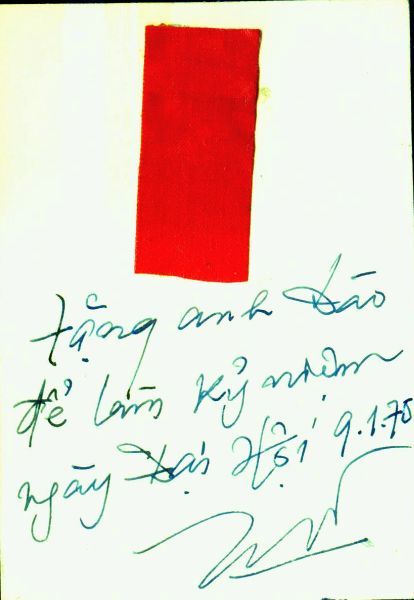 tặng anh Đào
để làm Kỷ niệm
ngày Đại Hội 9.1.78